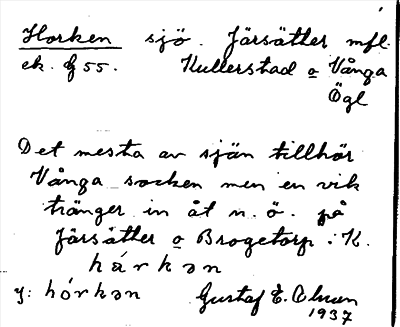 Horken sjö. Järsätter mfl.
ek. 55. Kullerstad o Vånga
Ögl
Det mesta av sjön tillhör
Vånga socken men en vik
tränger in åt n. ö. på
Järsätter o Brogetorp i K.
hárkən
y: hórkən Gustaf E. Olsson
1937